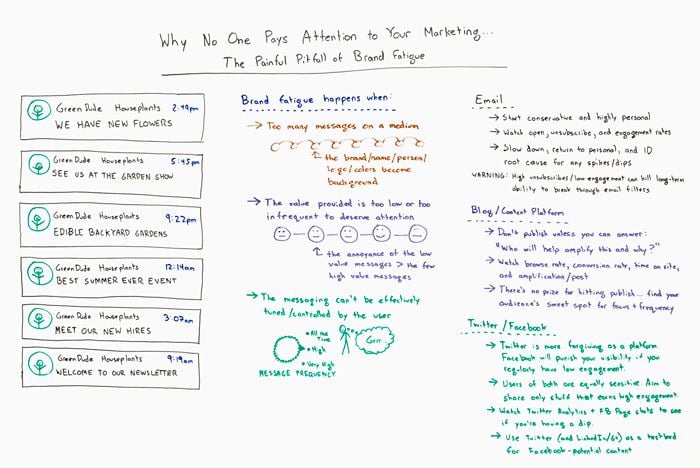 Why No One Pays Attention to Your Marketing...
The Painful Pitfall of Brand Fatigue
GreenDude Houseplants 2:49pm
WE HAVE NEW FLOWERS
GreenDude Houseplants 5:45pm
SEE US AT THE GARDEN SHOW
GreenDude Houseplants 9:22pm
EDIBLE BACKYARD GARDENS
GreenDude Houseplants 12:14am
BEST SUMMER EVER EVENT
GreenDude Houseplants 3:07am
MEET OUR NEW HIRES
GreenDude Houseplants 9:19am
WELCOME TO OUR NEWSLETTER
Brand fatigue happens when:
→ Too many messages on a medium
↑ the brand/name/person/
logo/colors become
background
→ The value provided is too low or too
infrequent to deserve attention
↑ the annoyance of the low
value messages > the few
high value messages
→ The messaging can't be effectively
tuned/controlled by the user
All the
Time
High
Very High
Grrr
MESSAGE FREQUENCY
Email
→ Start conservative and highly personal
→ Watch open, unsubscribe, and engagement rates
→ Slow down, return to personal, and ID
root cause for any spikes/dips
WARNING: High unsubscribes/low engagement can kill long-term
ability to break through email filters
Blog/Content Platform
→ Don't publish unless you can answer:
"Who will help amplify this and why?"
→ Watch browse rate, conversion rate, time on site,
and amplification/post
→ There's no prize for hitting publish... find your
audience's sweet spot for focus + frequency
Twitter/Facebook
→ Twitter is more forgiving as a platform
Facebook will punish your visibility if you
regularly have low engagement.
→ Users of both are equally sensitive. Aim to
share only stuff that earns high engagement.
→ Watch Twitter Analytics + FB Page stats to see
if you're having a dip.
→ Use Twitter (and LinkedIn/G+) as a testbed
for Facebook-potential content